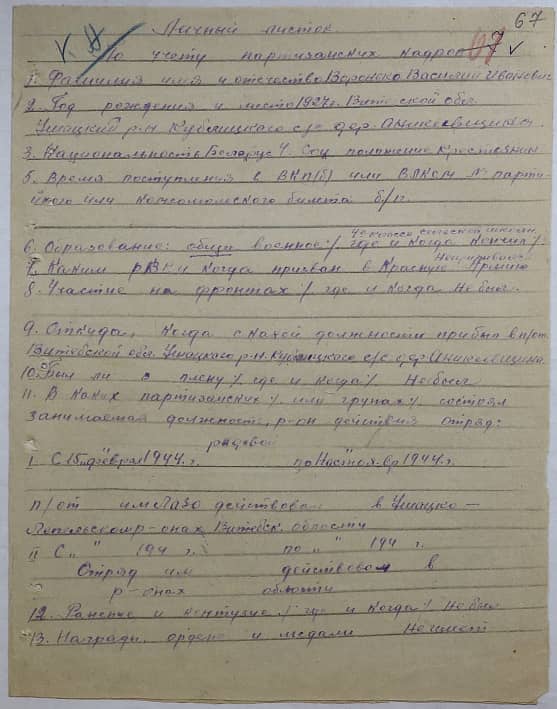 67
Личный листок
по учету партизанских кадров
1. Фамилия имя и отчество Воронко Василий Иванович
2. Год рождения и место 1927 г. Витебской обл.
Ушацкий р-н Кубличского с/с дер. Аникеевщина
3. Национальность Беларус 4. Соц положение Крестьянин
5. Время поступления в ВКП(б) или ВЛКСМ № парти-
йного или комсомольского билета б/п.
6. Образование: общи военное/. где и когда кончил/.
7. Каким РВК и когда призван в Красную Армию
8. Участие на фронтах/. где и когда Не был.
9. Откуда, когда с какой должности прибыл в п/от.
Витебской обл. Ушацкого р-н. Кубличского с/с д. Аникеевщина
10. Был ли в плену/. где и когда/. Не был
11. В каких партизанских/. или групах/. состоял
занимаемая должность, р-он действия отряд:
рядевой
I. С 15 февраля 1944 г. по Настоя-вр 1944 г.
п/от им Лазо действовал в Ушацко-
Лепельском р-онах Витебск. области
II С „ " 194 г. по „ " 194 г.
Отряд им действовал в
р-онах области
12. Ранение и контузие/. где и когда/. Не был
13. Награди, ордена и медали Не имет